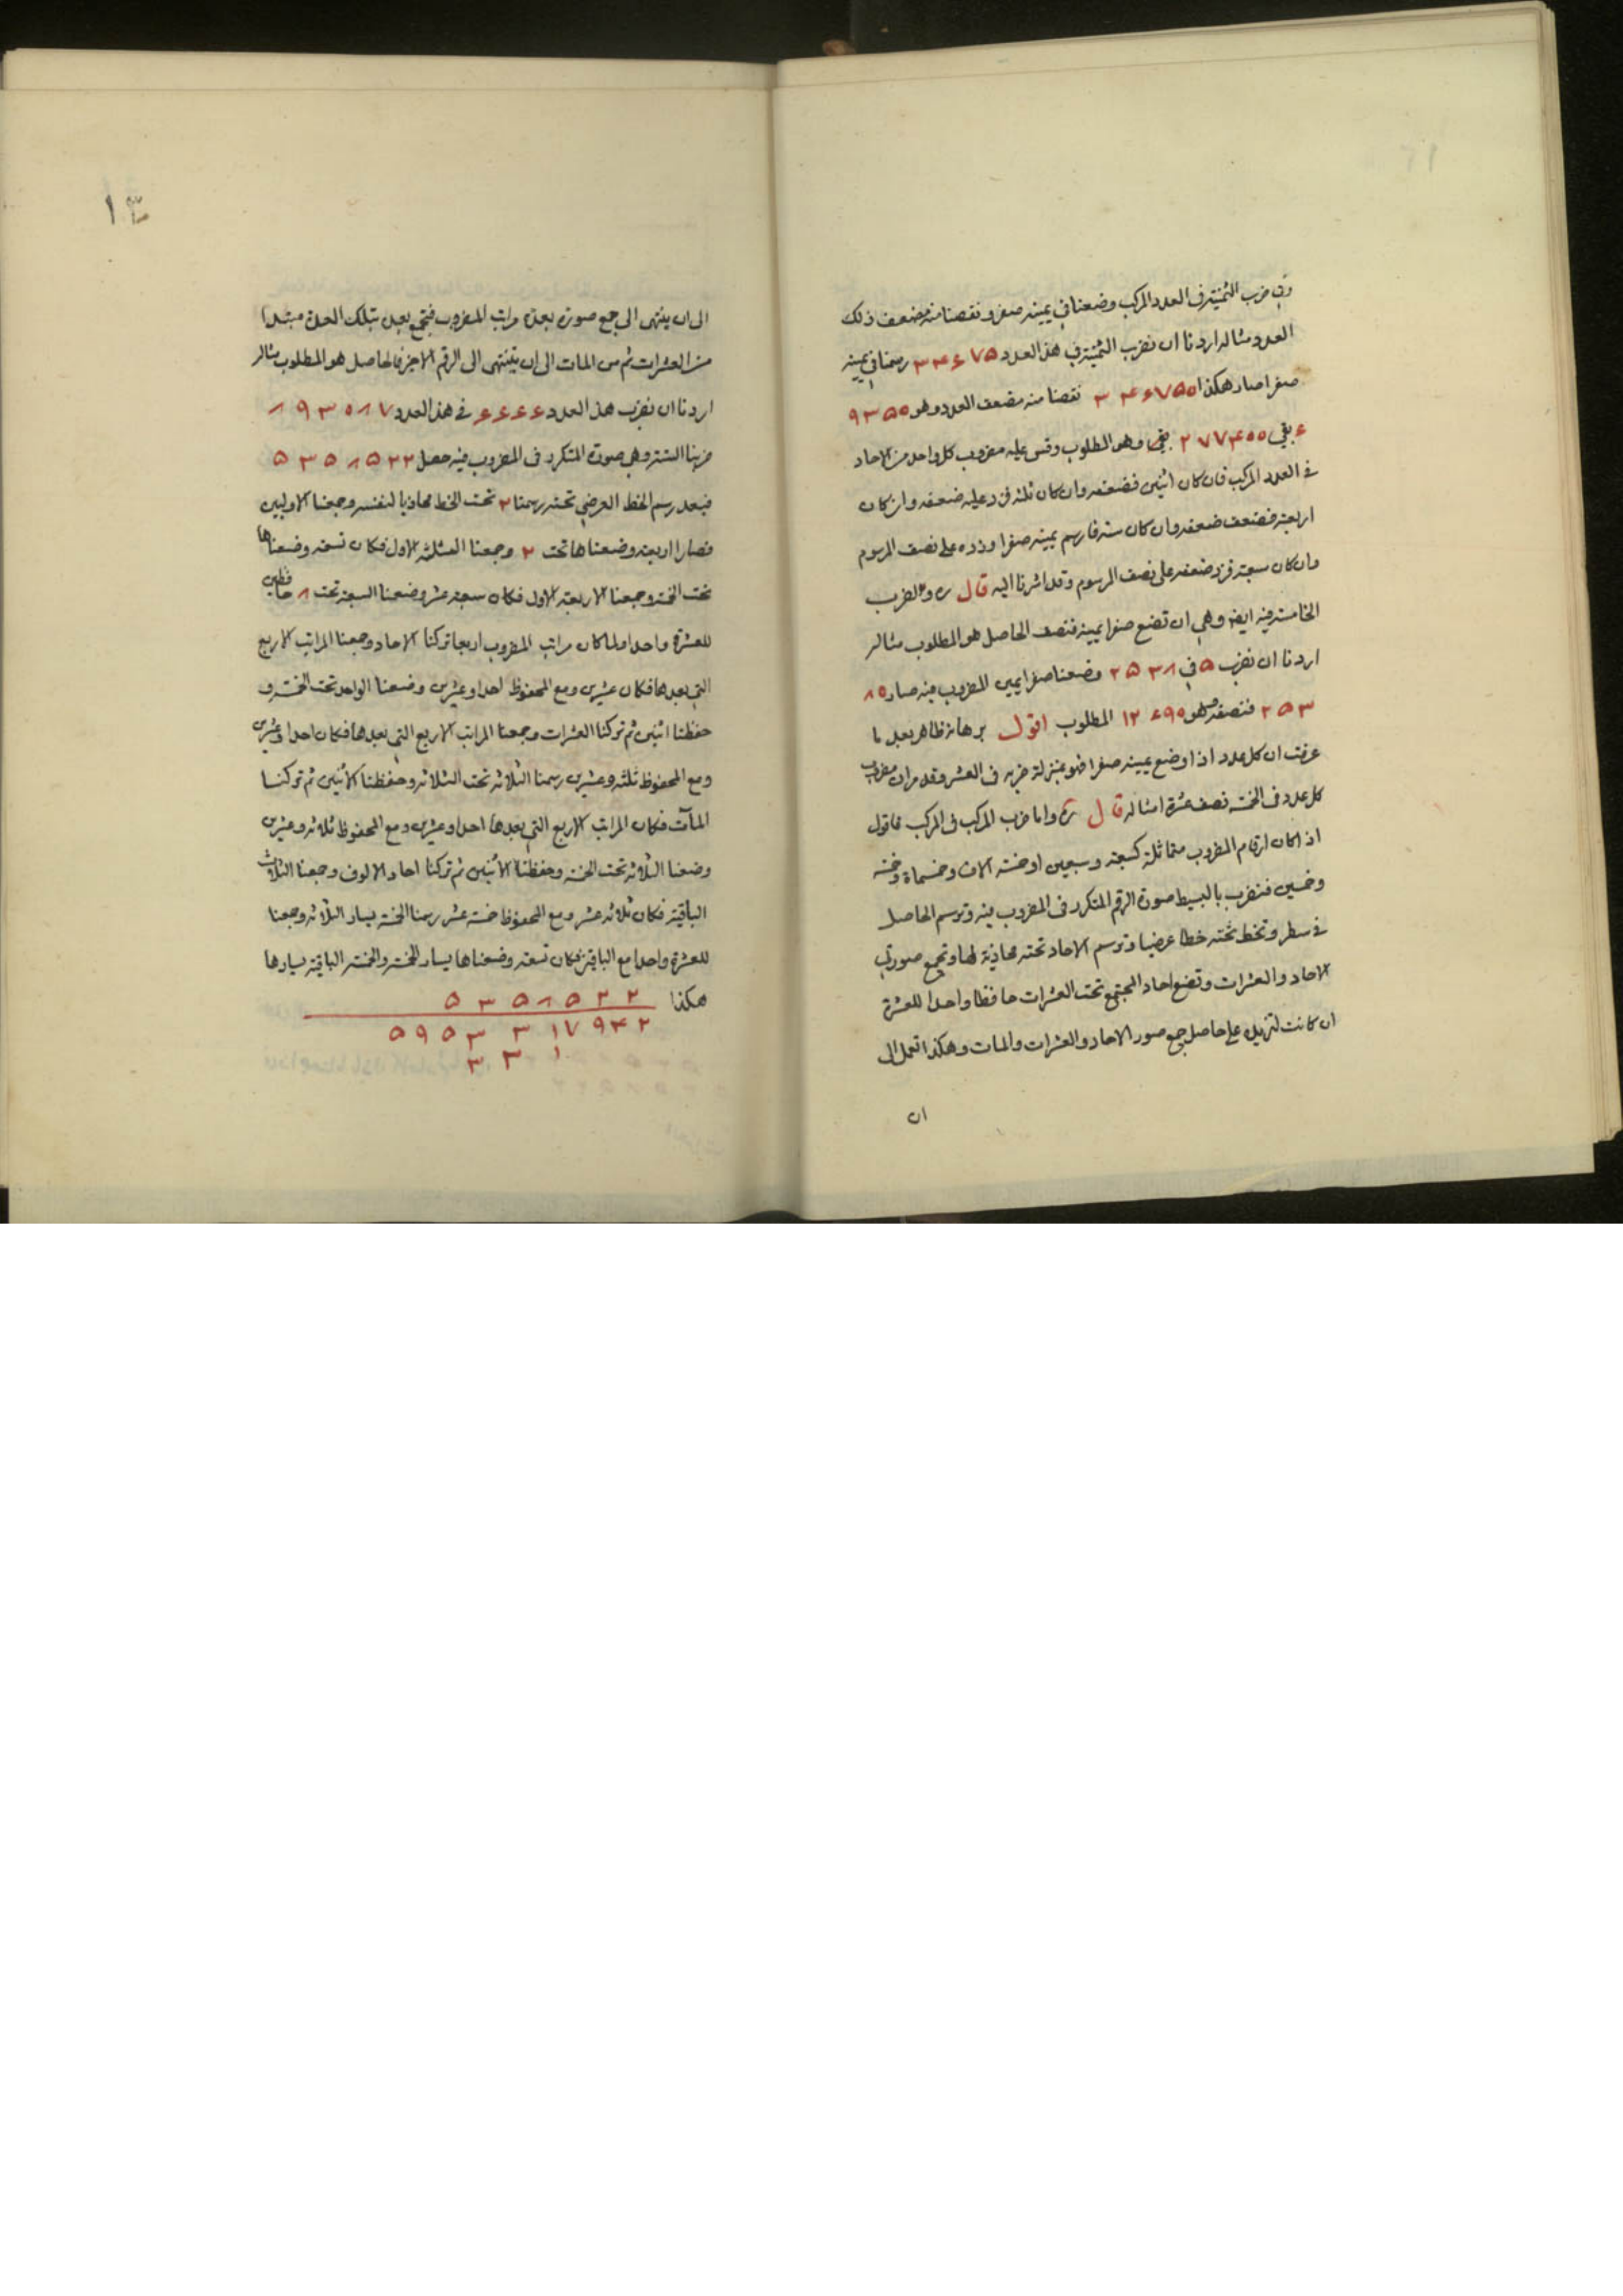 وفي ضرب الثمنية في العدد المركب وضعنا في يمينه صفر و نقصنا منه مضعف ذلك
العدد مثاله اردنا ان نضرب الثمنية في هذا العدد ٣٣۴۶۷۵ رسمنا في يمينه
صفرا صار هكذا ۳ ۴۶۷۵۰ نقصنا منه مضعف العدد وهو ۹۳۵۰
بقي ۲۷۷۴۰۰ بقي وهو المطلوب وقس عليه مضروب كل واحد من الاحاد
في العدد المركب فان كان اثنين فضعفه وان كان ثلثه فزد عليه ضعفه وان كان
اربعة فضعف ضعفه وان كان ستة فارسم يمينه صفرا وزده على نصف المرسوم
وان كان سبعة فزد ضعفه على نصف المرسوم وقد اشرنا اليه قال ره والضرب
الخامسة فيه ايضا وهي ان تضع صفرا يمينه فنصف الحاصل هو المطلوب مثاله
اردنا ان نضرب ۵ في ۲۵۳۸ وضعنا صفرا يمين المضروب فيه صار ۸۰
۲۵۳ فنصفه وهو ۱۲۶۹۰ المطلوب اقول برهانه ظاهر بعد ما
عرفت ان كل عدد اذا وضع يمينه صفرا فهو بمنزلة ضربه في العشر وقد مر ان مضروب
كل عدد في الخمسة نصف عشرة امثاله قال ره واما ضرب المركب في المركب فاقول
اذا كان ارقام المضروب متماثلة كسبعة وسبعين او خمسة الاف وخمسماة وخمسة
وخمسين فنضرب بالبسيط صورة الرقم المتكرر في المضروب فيه وترسم الحاصل
في سطر وتخط تحته خطا عرضيا وترسم الاحاد تحته محاذية لها وتجمع صورتي
الاحاد والعشرات وتضع احاد المجتمع تحت العشرات حافظا واحدا للعشرة
ان كانت لتزيده على حاصل جمع صور الاحاد والعشرات والمات وهكذا تعمل الى
ان
۱۳
الى ان ينتهى الى جمع صورة بعدة مراتب المضروب فتجمع بعده بتلك العدة مبتدأ
من العشرات ثم من المات الى ان ينتهى الى الرقم الاخير فالحاصل هو المطلوب مثاله
اردنا ان نضرب هذا العدد ۶۶۶۶ في هذا العدد ۸۹۳۰۸۷
ضربنا الستة وهي صورة المتكرر في المضروب فيه حصل ۵۳۵۸۵۲۲
فبعد رسم الخط العرضي تحته رسمنا ۲ تحت الخط محاذيا لنفسه وجمعنا الاوليين
فصارا اربعة وضعناها تحت ۲ وجمعنا الثلثة الاول فكان تسعة وضعناها
تحت الخمسة وجمعنا الاربعة الاول فكان سبعة عشر وضعنا السبعة تحت ۸ حافظين
للعشرة واحدا ولما كان مراتب المضروب اربعا تركنا الاحاد وجمعنا المراتب الاربع
التي بعدها فكان عشرين ومع المحفوظ احدا وعشرين وضعنا الواحد تحت الخمسة و
حفظنا اثنين ثم تركنا العشرات وجمعنا المراتب الاربع التي بعدها فكان احدا وعشرين
ومع المحفوظ ثلثة وعشرين رسمنا الثلاثة تحت الثلاثة وحفظنا الاثنين ثم تركنا
المآت فكان المراتب الاربع التي بعدها احدا وعشرين ومع المحفوظ ثلاثة وعشرين
وضعنا الثلاثة تحت الخمسة وحفظنا الاثنين ثم تركنا احاد الالوف وجمعنا الثلاث
الباقية فكان ثلاثة عشر ومع المحفوظ خمسة عشر رسمنا الخمسة يسار الثلاثة وجمعنا
للعشرة واحدا مع الباقية فكان تسعة وضعناها يسار الخمسة والخمسة الباقية يسارها
هكذا ۵ ۳ ۵ ۸ ۵ ۲ ۲
۵ ۹ ۵ ۳ ۳ ۱ ۷ ۹ ۴ ۲
۳ ۳ ۱